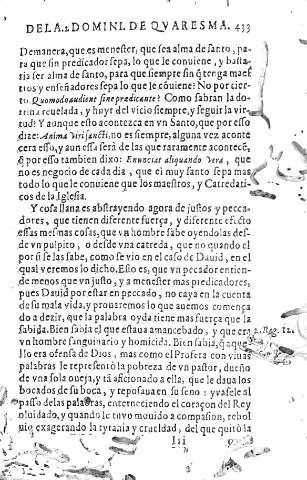 DE LA.2 DOMINI. DE QVARESMA. 433
Demanera, que es menester, que sea alma de santo, pa-
ra que sin predicador sepa, lo que le conuiene, y basta-
ria ser alma de santo, para que siempre sin q̃ tẽga maes
tros y enseñadores sepa lo que le cõuiene? No por cier-
to. Quomodo audient sine predicante? Como sabran la do-
trina reuelada, y huyr del vicio siempre, y seguir la vir-
tud? Y aunque esto acontezca en vn Santo, que por esso
dize: Anima viri sancti, no es siempre, alguna vez aconte
cera esso, y aun essa serà de las que raramente acontecẽ,
q̃ por esso tambien dixo: Enunciat aliquando vera, que
no es negocio de cada dia, que el muy santo sepa mas
todo lo que le conuiene que los maestros, y Catredati-
cos de la Iglesia.
Y cosa llana es abstrayendo agora de justos y pecca-
dores, que tienen diferente fuerça, y diferente efecto
essas mesmas cosas, que vn hombre sabe oyendolas des-
de vn pulpito, o desde vna catreda, que no quando el
por si se las sabe, como se vio en el caso de Dauid, en el
qual veremos lo dicho. Esto es, que vn pecador entien-
de menos que vn justo, y a menester mas predicadores,
pues Dauid por estar en peccado, no caya en la cuenta
de su mala vida, y prouaremos lo que auemos comença
do a dezir, que la palabra oyda tiene mas fuerça que la
sabida. Bien sabia el que estaua amancebado, y que era 2. Reg. 12.
vn hombre sanguinario y homicida. Bien sabia, q̃ aque
llo era ofensa de Dios, mas como el Profeta con viuas
palabras le representò la pobreza de vn pastor, dueño
de vna sola oueja, y tã aficionado a ella, que le daua los
bocados de su boca, y reposaua en su seno: yuasele al
passo de las palabras, enterneciendo el coraçon del Rey
oluidado, y quando le tuvo mouido a compasion, rebol
uio exagerando la tyrania y crueldad, del que quitò la
Iii